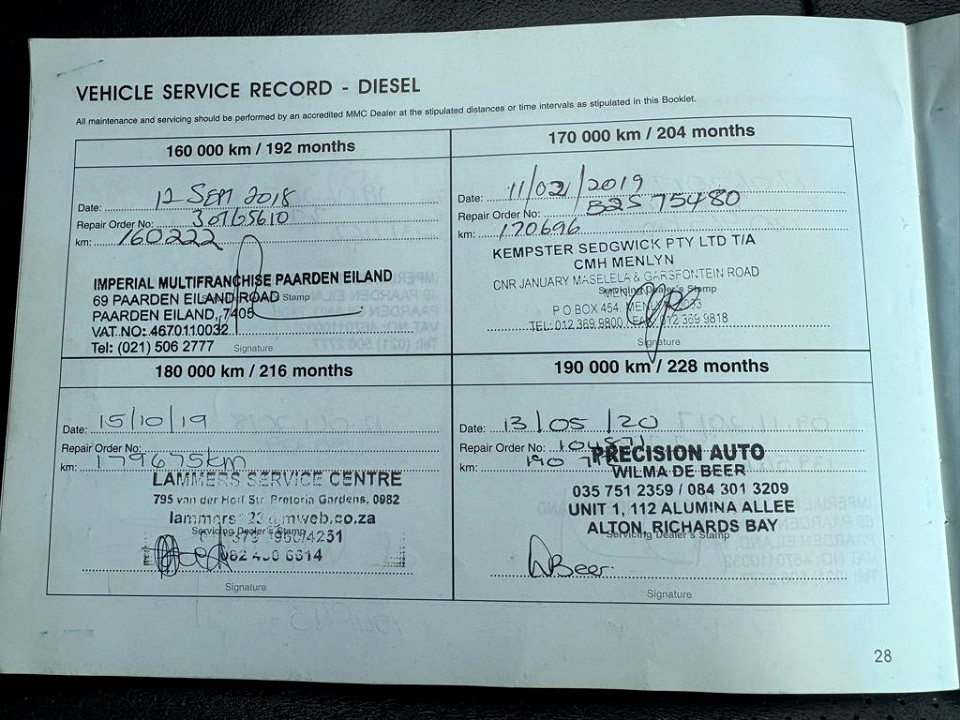 VEHICLE SERVICE RECORD - DIESEL
All maintenance and servicing should be performed by an accredited MMC Dealer at the stipulated distances or time intervals as stipulated in this Booklet.
160 000 km / 192 months
Date: 12 SEPT 2018
Repair Order No: 30765610
km: 160222
IMPERIAL MULTIFRANCHISE PAARDEN EILAND
69 PAARDEN EILAND ROAD
Stamp
PAARDEN EILAND, 7405
VAT NO: 4670110032
Tel: (021) 506 2777
Signature
170 000 km / 204 months
Date: 11/02/2019
Repair Order No: B25 75480
km: 170696
KEMPSTER SEDGWICK PTY LTD T/A
CMH MENLYN
CNR JANUARY MASELELA & GARSFONTEIN ROAD
Servicing Dealer's Stamp
P O BOX 454
TEL: 012 369 9800 FAX: 012 369 9818
Signature
180 000 km / 216 months
Date: 15/10/19
Repair Order No:
km: 179675km
LAMMERS SERVICE CENTRE
795 van der Hoff Str Pretoria Gardens, 0082
Servicing Dealer's Stamp
Signature
190 000 km / 228 months
Date: 13/05/20
Repair Order No: 104871
km: 190
PRECISION AUTO
WILMA DE BEER
035 751 2359 / 084 301 3209
UNIT 1, 112 ALUMINA ALLEE
ALTON, RICHARDS BAY
Servicing Dealer's Stamp
DBeer
Signature
28